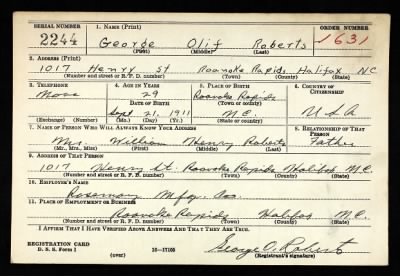 SERIAL NUMBER 1. NAME (Print) ORDER NUMBER
2244 George Olif Roberts 1631
(First) (Middle) (Last)
2. ADDRESS (Print)
1017 Henry St Roanoke Rapids Halifax NC
(Number and street or R. F. D. number) (Town) (County) (State)
3. TELEPHONE 4. AGE IN YEARS 5. PLACE OF BIRTH 6. COUNTRY OF CITIZENSHIP
29 Roanoke Rapids
DATE OF BIRTH (Town or county)
Sept 21, 1911 N.C. U S A
(Exchange) (No.) (Mo.) (Day) (Yr.) (State or country)
7. NAME OF PERSON WHO WILL ALWAYS KNOW YOUR ADDRESS 8. RELATIONSHIP OF THAT PERSON
Mr. William Henry Roberts Father
(Mr., Mrs., Miss) (First) (Middle) (Last)
9. ADDRESS OF THAT PERSON
1017 Henry St. Roanoke Rapids Halifax N.C.
(Number and street or R. F. D. number) (Town) (County) (State)
10. EMPLOYER'S NAME
Rosemary Mfg. Co.
11. PLACE OF EMPLOYMENT OR BUSINESS
Roanoke Rapids Halifax N.C.
(Number and street or R. F. D. number) (Town) (County) (State)
I AFFIRM THAT I HAVE VERIFIED ABOVE ANSWERS AND THAT THEY ARE TRUE.
REGISTRATION CARD
D. S. S. Form 1 16-17105 George O. Robert
(over) (Registrant's signature)